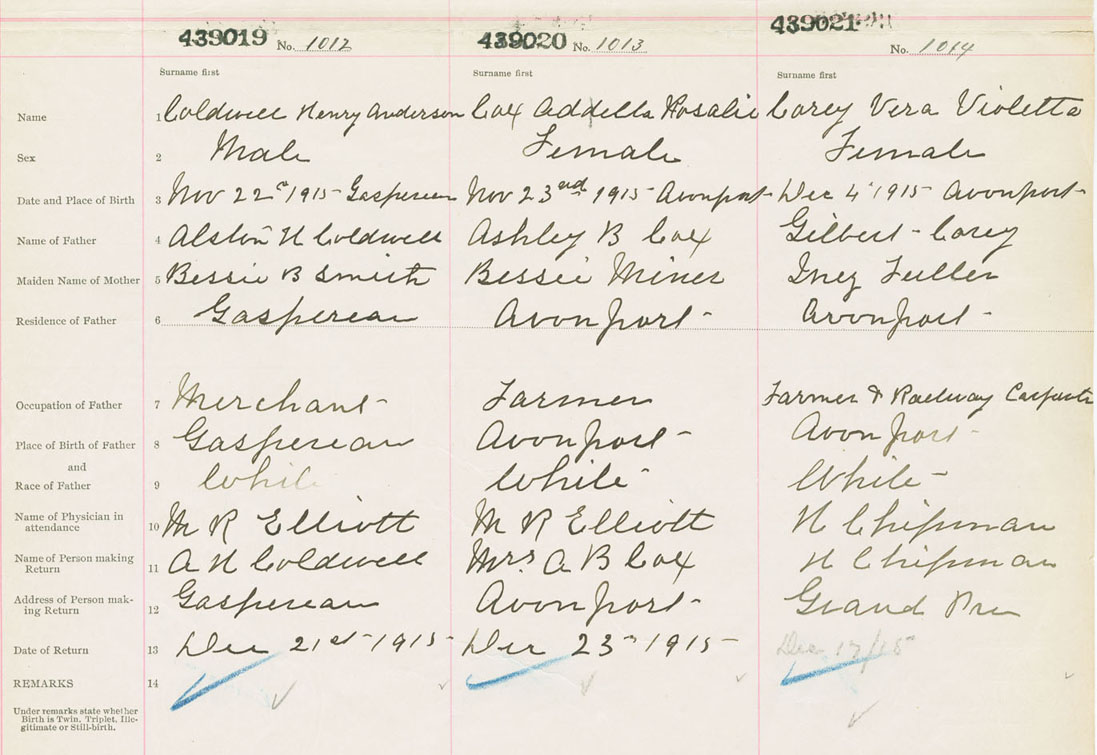 439019 No. 1012 439020 No. 1013 439021 No. 1014
Surname first Surname first Surname first
Name 1 Coldwell Henry Anderson Cox Addella Rosalie Corey Vera Violetta
Sex 2 Male Female Female
Date and Place of Birth 3 Nov 22nd 1915 Gaspereau Nov 23rd 1915 Avonport Dec 4 1915 Avonport
Name of Father 4 Alston H Coldwell Ashley B Cox Gilbert Corey
Maiden Name of Mother 5 Bessie B Smith Bessie Miner Inez Fuller
Residence of Father 6 Gaspereau Avonport Avonport
Occupation of Father 7 Merchant Farmer Farmer & Railway Carpenter
Place of Birth of Father 8 Gaspereau Avonport Avonport
and
Race of Father 9 White White White
Name of Physician in
attendance 10 M R Elliott M R Elliott H Chipman
Name of Person making
Return 11 A H Coldwell Mrs. A B Cox H Chipman
Address of Person mak-
ing Return 12 Gaspereau Avonport Grand Pre
Date of Return 13 Dec 21st 1915 Dec 23rd 1915 Dec 17/15
REMARKS 14
Under remarks state whether
Birth is Twin, Triplet, Ille-
gitimate or Still-birth.